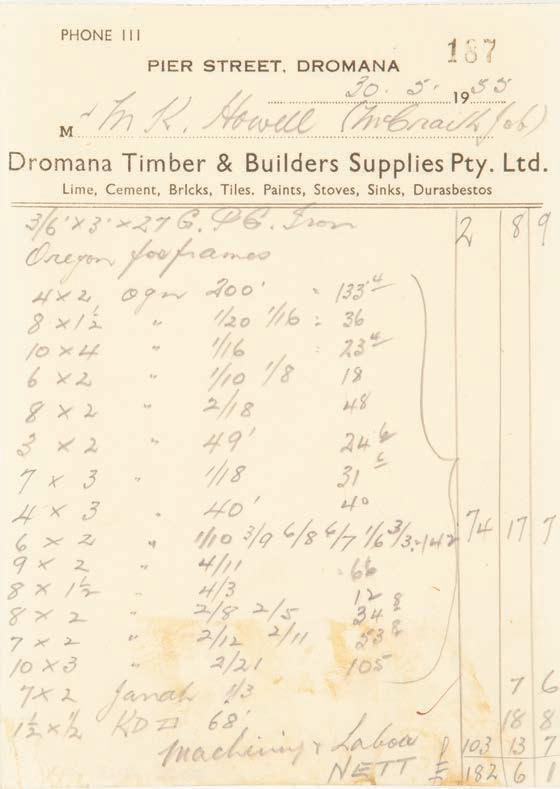 PHONE III
187
PIER STREET, DROMANA
30. 5. 1955
M r M K. Howell (McCraith Job)
Dromana Timber & Builders Supplies Pty. Ltd.
Lime, Cement, Bricks, Tiles. Paints, Stoves, Sinks, Durasbestos
3/6' x 3' x 27 G. P G. Iron 2 8 9
Oregon for frames
4 x 2 Ogn 200' = 133.4
8 x 1½ " 1/20 1/16 = 36
10 x 4 " 1/16 23 4
6 x 2 " 1/10 1/8 18
8 x 2 " 2/18 48
3 x 2 " 49' 24 6
7 x 3 " 1/18 31 6
4 x 3 " 40' 40
6 x 2 " 1/10 3/9 6/8 6/7 1/6 3/3 = 142 74 17 7
9 x 2 " 4/11 66
8 x 1½ " 4/3 12
8 x 2 " 2/8 2/5 34 8
7 x 2 " 2/12 2/11 53 8
10 x 3 " 2/21 105
7 x 2 Jarrah 1/3 7 6
1½ x ½ KD 68' 18 8
Machining & Labour 103 13 7
NETT £ 182 6 1